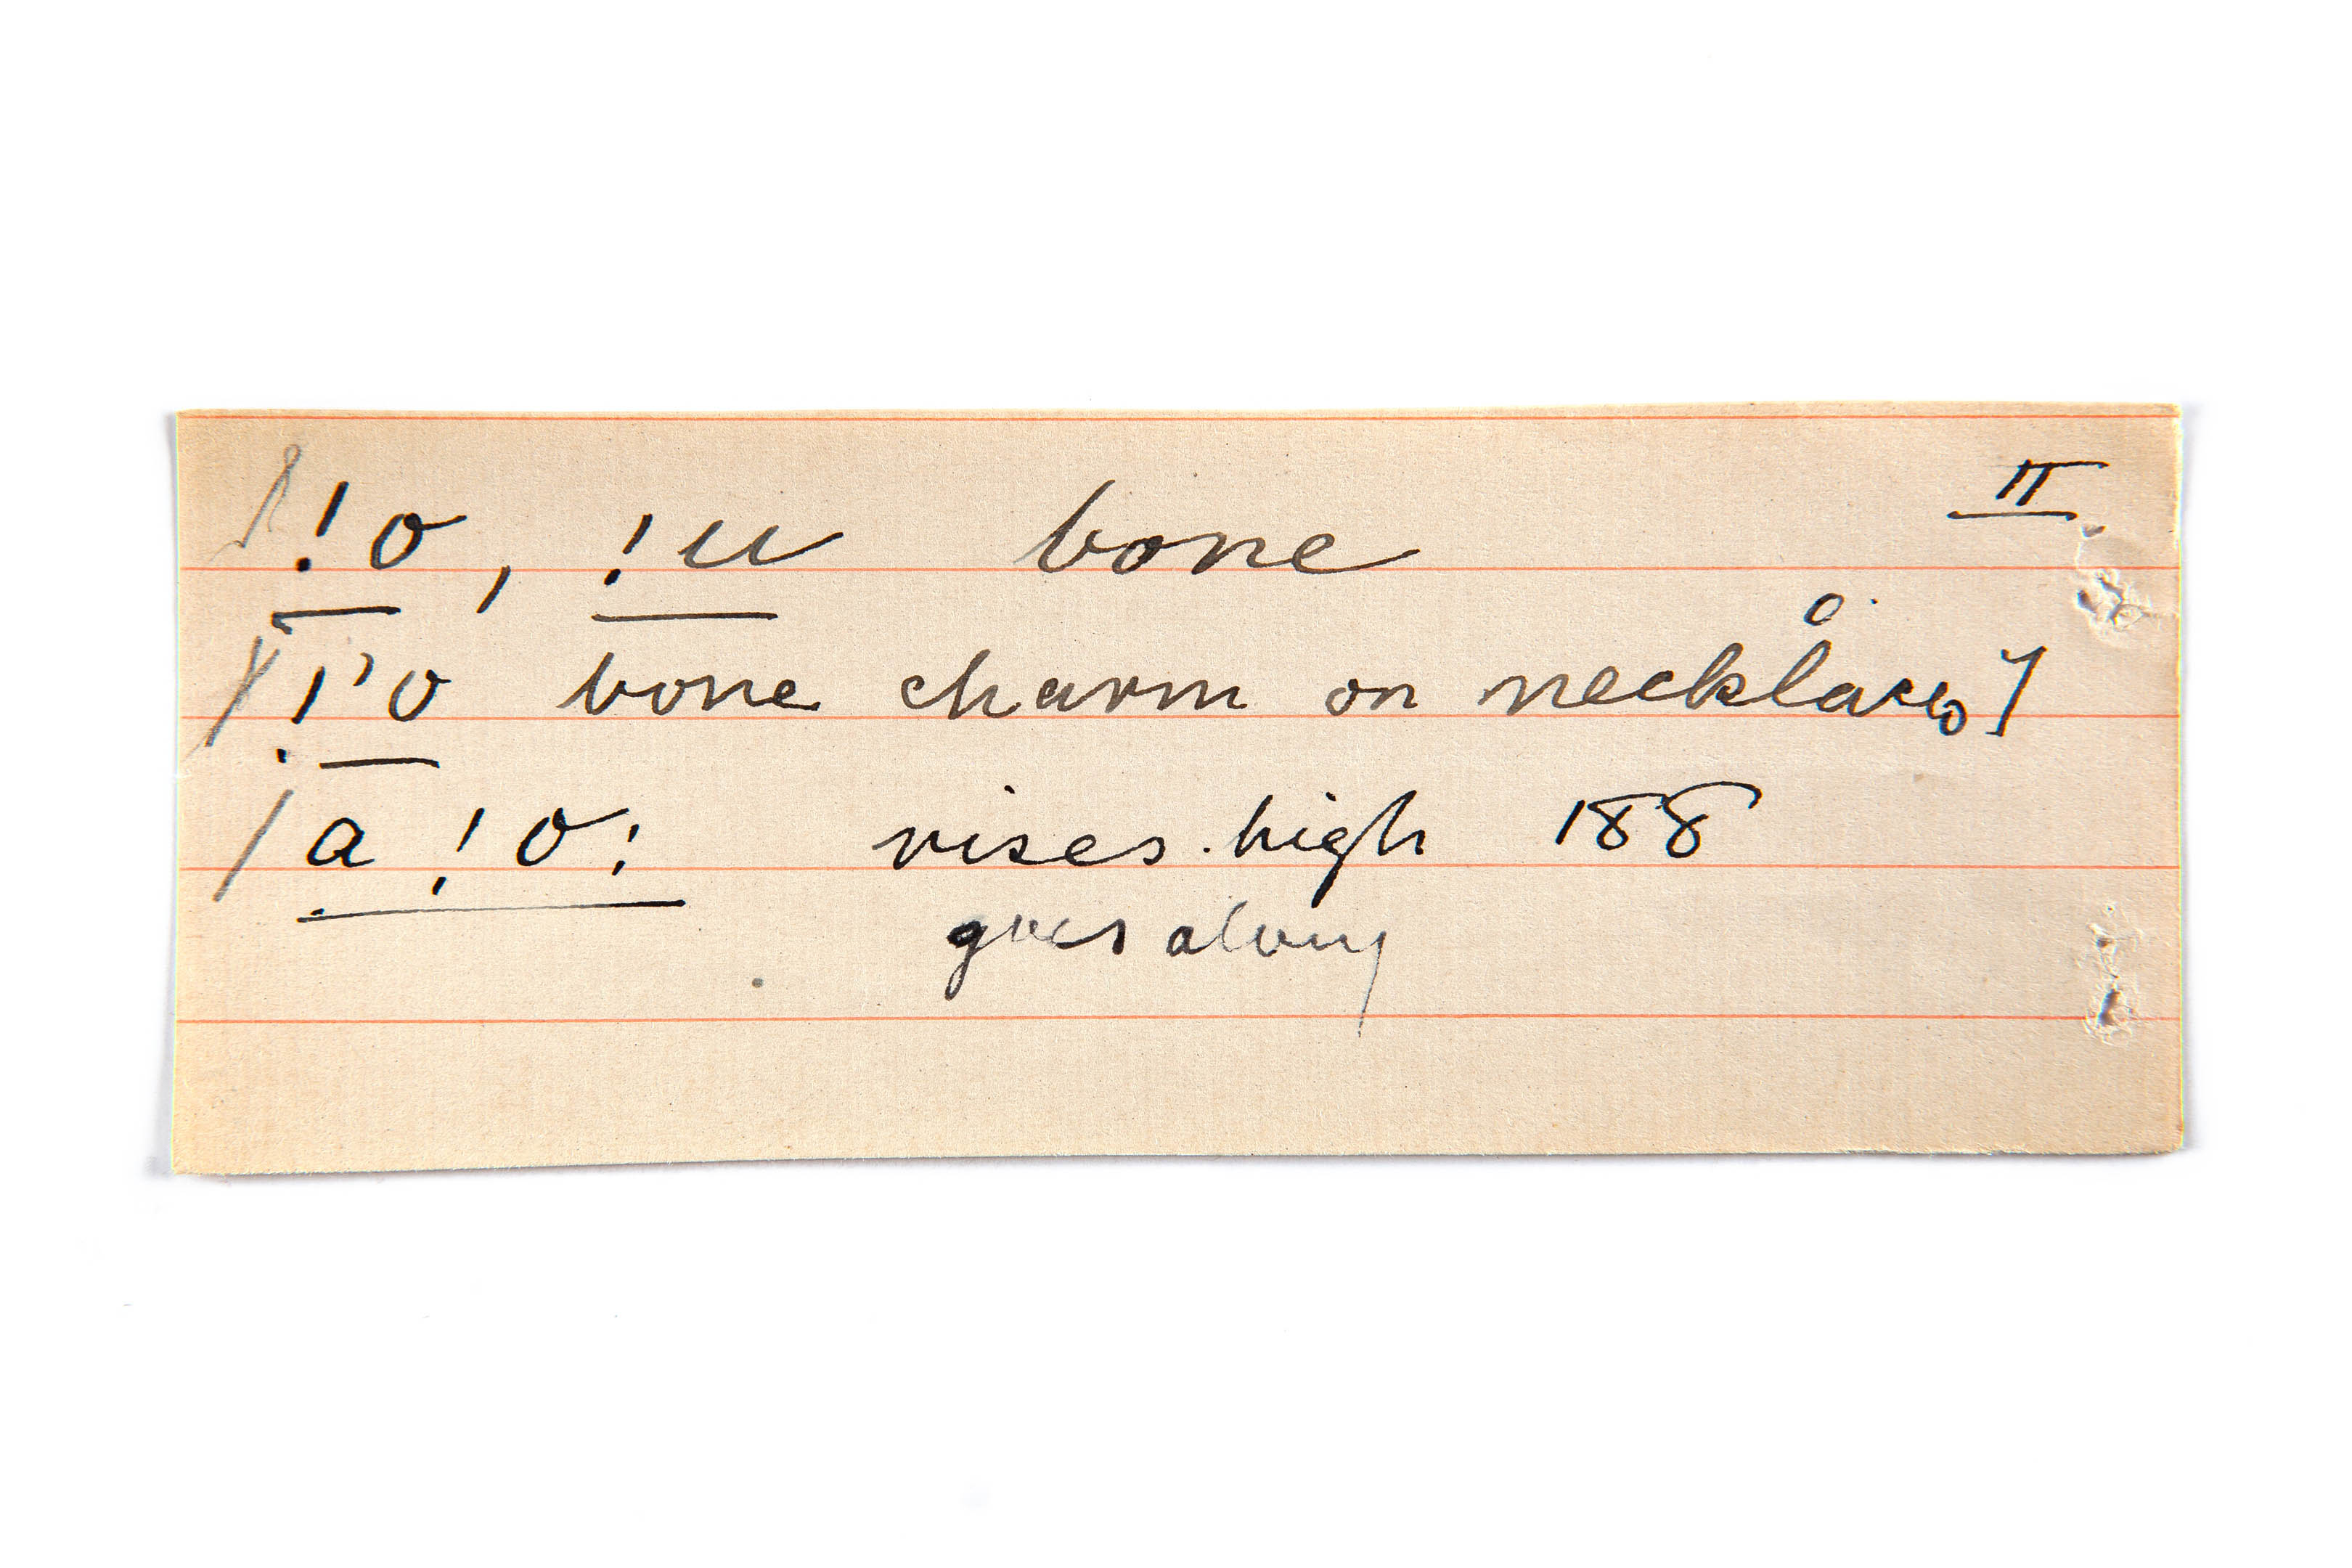 !o, !u bone II
!'o bone charm on necklaces]
a !o: rises high 188
goes along